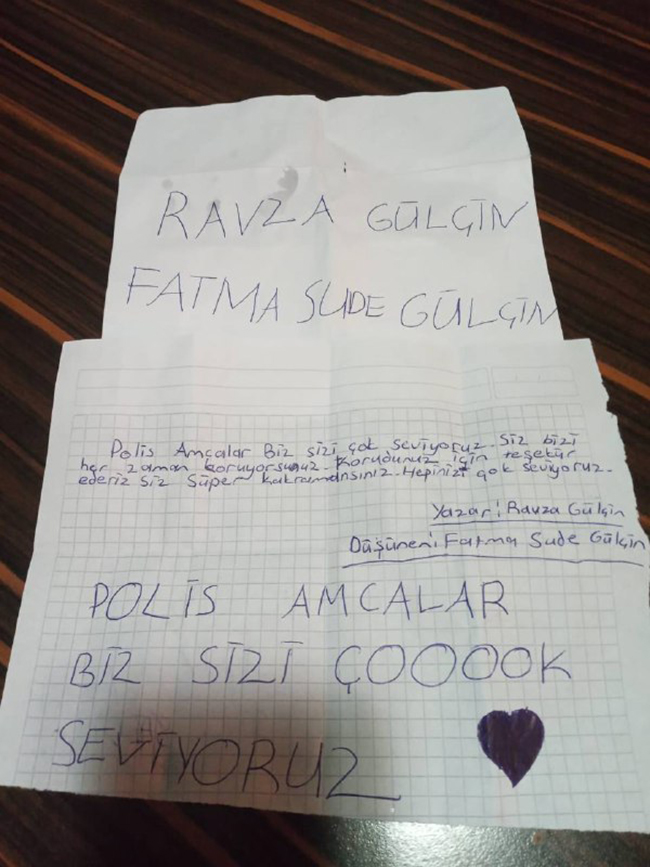 RAVZA GÜLÇİN
FATMA SUDE GÜLÇİN
Polis Amcalar Biz sizi çok seviyoruz. Siz bizi
her zaman koruyorsunuz. Korudunuz için teşekür
ederiz siz Süper kahramansınız. Hepinizi çok seviyoruz.
Yazar: Ravza Gülçin
Düşünen: Fatma Sude Gülçin
POLİS AMCALAR
BİZ SİZİ ÇOOOOK
SEVİYORUZ